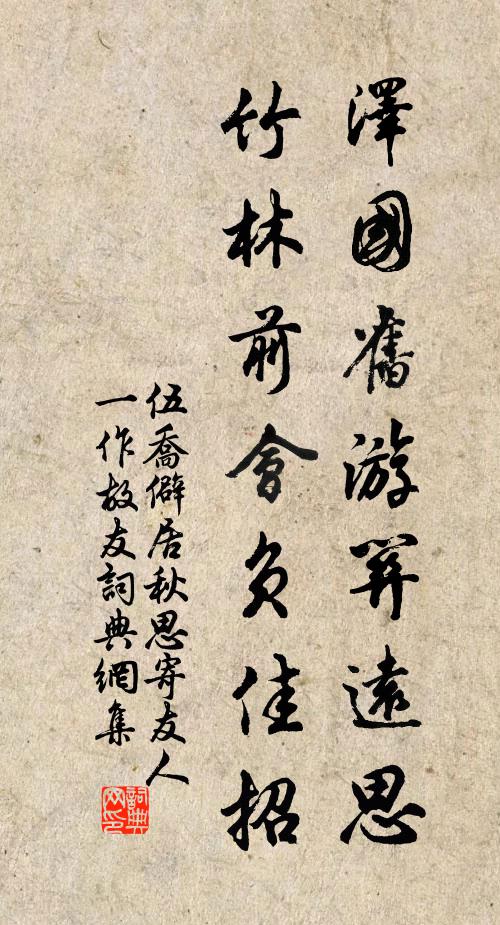 澤國舊游關遠思
竹林前會負佳招
伍喬僻居秋思寄友人
一作故友詞典網集
詞典网印